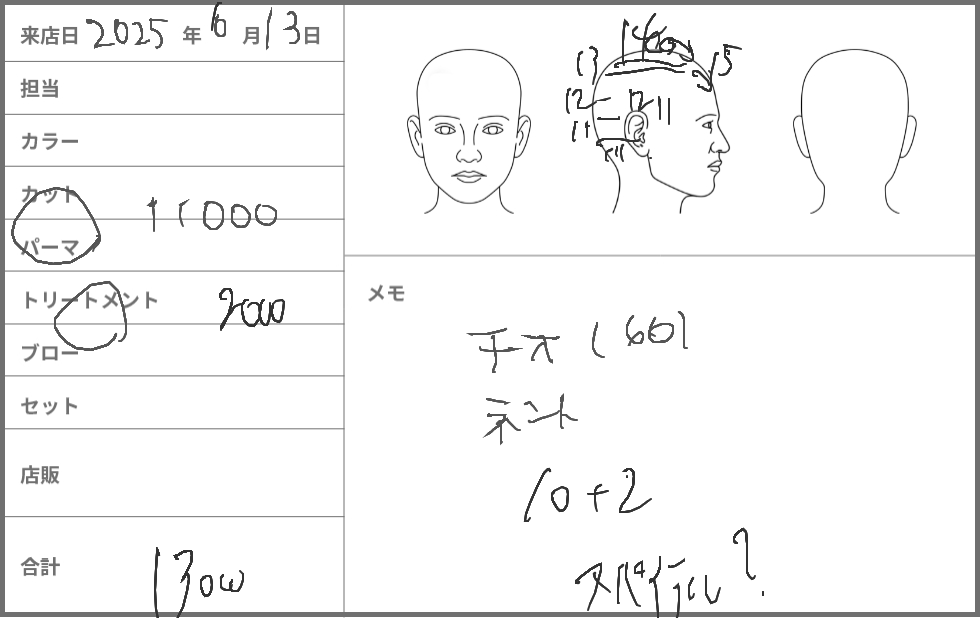 来店日 2025 年 6 月 13 日
担当
カラー
カット
パーマ 11000
トリートメント 2000
ブロー
セット
店販
合計 13000
13 14 15
12 12 11
11
メモ
チオ (60)
ネント
10+2